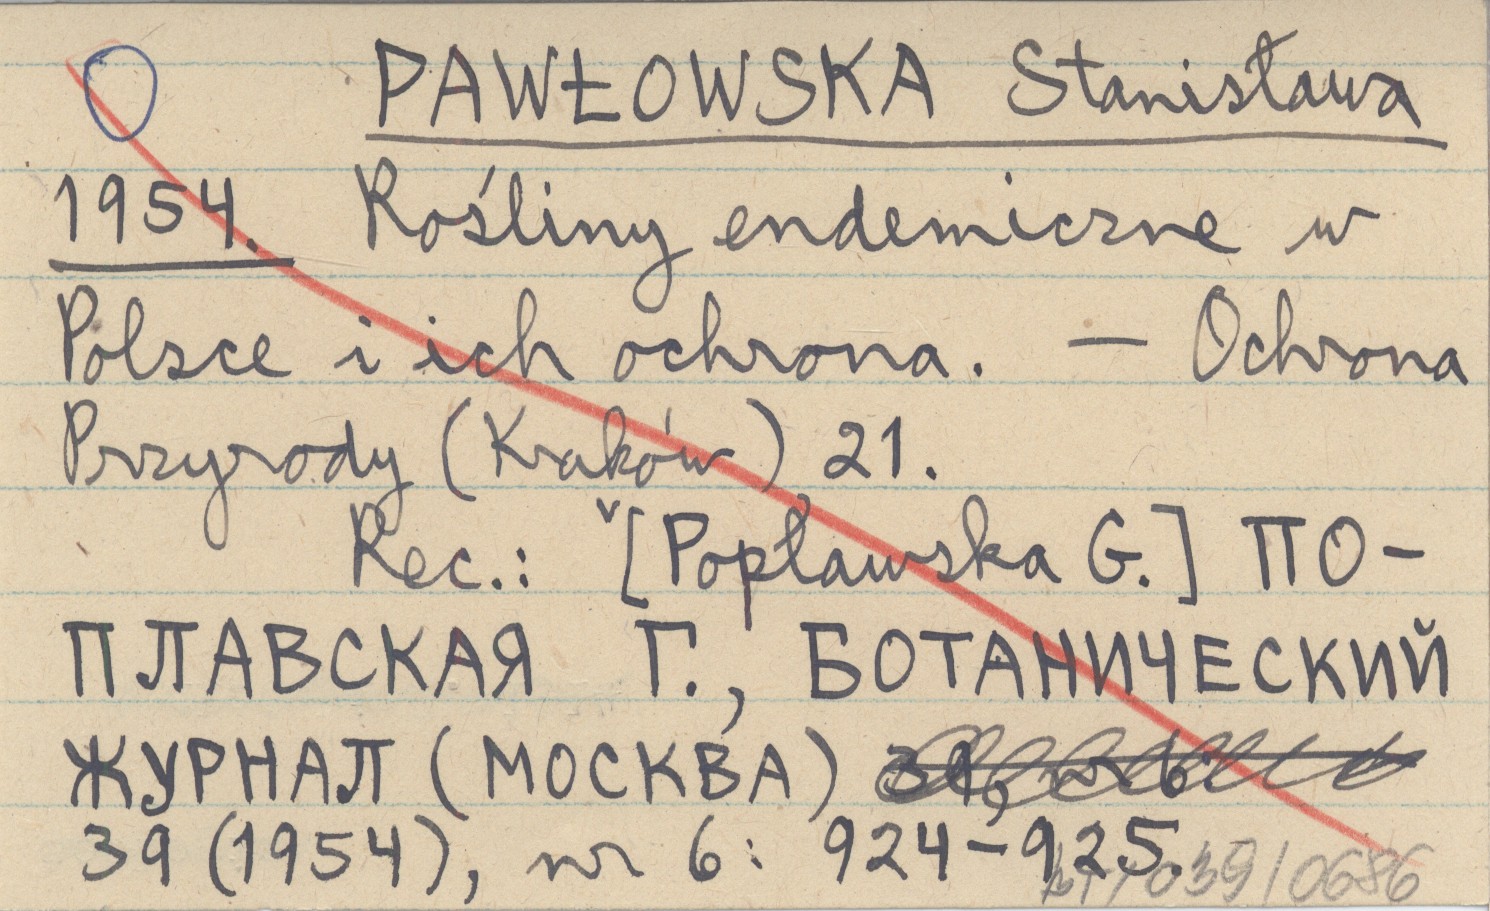 PAWŁOWSKA Stanisława
1954. Rośliny endemiczne w
Polsce i ich ochrona. — Ochrona
Przyrody (Kraków) 21.
Rec.: ˇ[Popławska G.] ПО-
ПЛАВСКАЯ Г., БОТАНИЧЕСКИЙ
ЖУРНАЛ (МОСКВА) 39, nr 6
39 (1954), nr 6: 924-925.
/039/0686